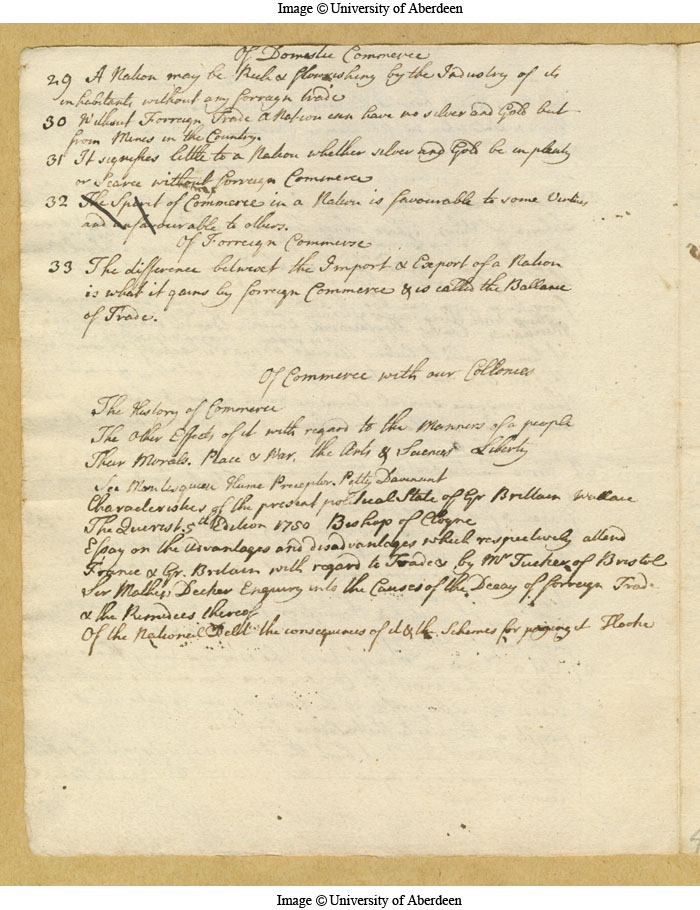 Image © University of Aberdeen
Of Domestic Commerce
29 A Nation may be Rich & flourishing by the Industry of its
inhabitants without any forreign trade
30 Without Forreign Trade a Nation can have no silver and Gold but
from Mines in the Country.
31 It signifies little to a Nation whether silver and Gold be in plenty
or Scarce without forreign Commerce
32 The Spirit of Commerce in a Nation is favourable to some Virtues
and unfavourable to others.
Of Forreign Commerse
33 The difference betwixt the Import & Export of a Nation
is what it gains by forreign Commerce & is called the Ballance
of Trade.
Of Commerce with our Collonies
The History of Commerce
The Other Effects of it with regard to the Manners of a people
Their Morals. Peace & War. the Arts & Sciences Liberty
See Montesquieu Hume Preceptor. Petty Davenant
Characteristics of the present political State of Gr Brittain Wallace
The Querist. 5th Edition 1750 Bishop of Cloyne
Essay on the advantages and disadvantages which respectively attend
France & Gr. Britain with regard to Trade by Mr Tucker of Bristol
Sir Mathew Decker Enquiry into the Causes of the Decay of forreign Trade
& the Remedies thereof
Of the National Debt the consequences of it & the Schemes for paying it
Image © University of Aberdeen